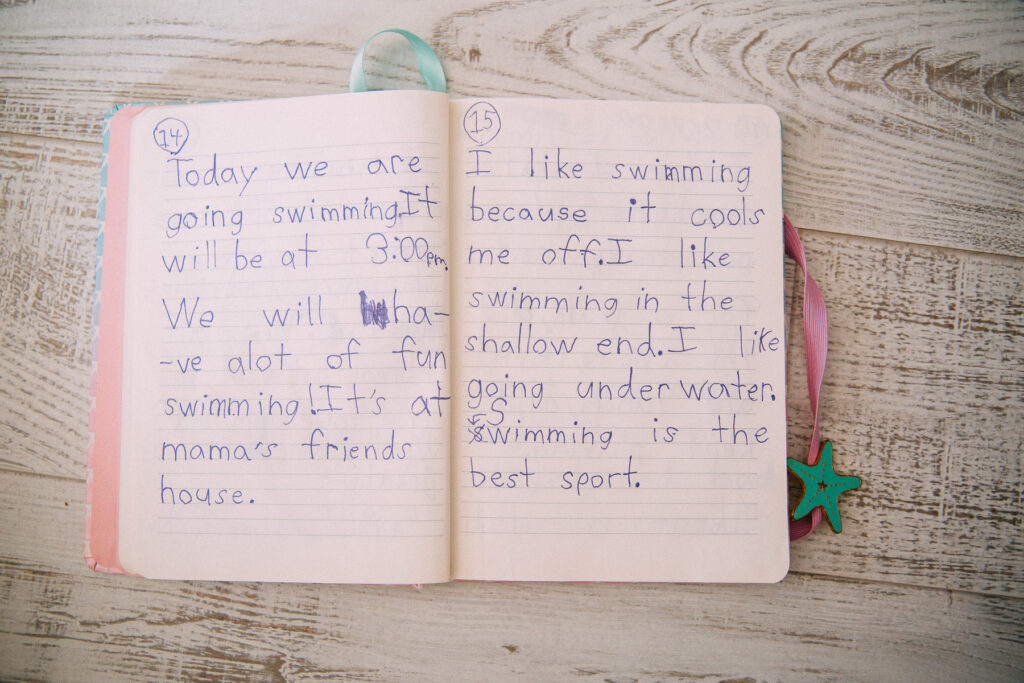 14
Today we are
going swimming.It
will be at 3:00pm.
We will ha-
-ve alot of fun
swimming!It's at
mama's friends
house.
15
I like swimming
because it cools
me off.I like
swimming in the
shallow end.I like
going under water.
Swimming is the
best sport.